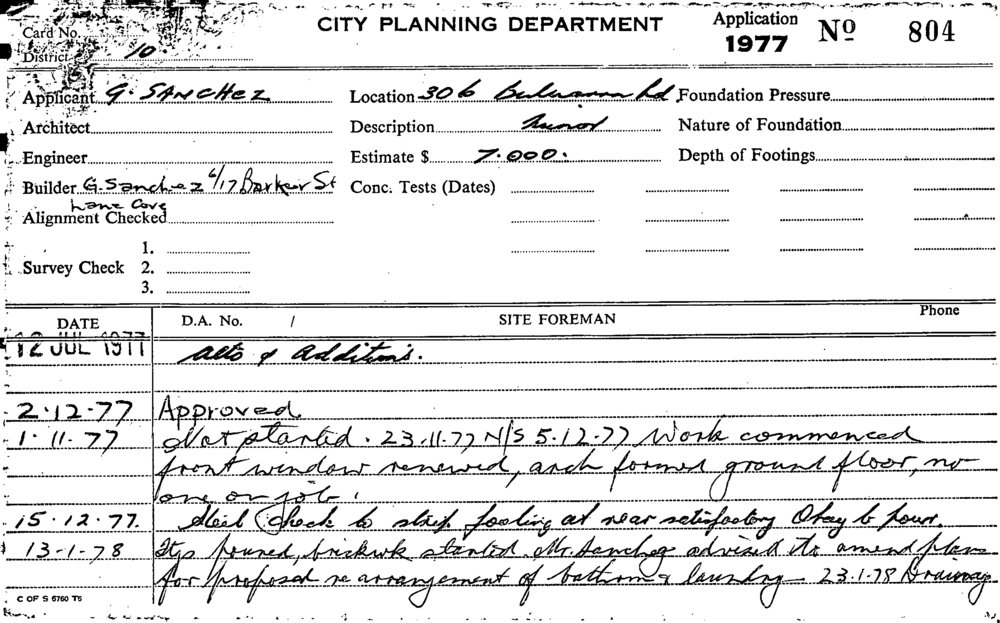 CITY PLANNING DEPARTMENT
Application 1977 Nº 804
Card No.
District 10
Applicant G. SANCHEZ Location 306 Bulwarra Rd Foundation Pressure
Architect Description minor Nature of Foundation
Engineer Estimate $ 7.000. Depth of Footings
Builder G. Sanchez 6/17 Barker St Conc. Tests (Dates)
Lane Cove
Alignment Checked
1.
Survey Check 2.
3.
DATE D.A. No. / SITE FOREMAN Phone
12 JUL 1977 alts & additions.
2.12.77 Approved.
1.11.77 Not started. 23.11.77 N/S 5.12.77 Work commenced
front window renewed, arch formed ground floor, no
one on job.
15.12.77. Steel check to strip footing at rear satisfactory Okay to pour.
13-1-78 Ftgs poured, brickwk started. Mr Sanchez advised to amend plans
for proposed re arrangement of bathrm & laundry 23.1.78 Drainage
C OF S 6760 T6